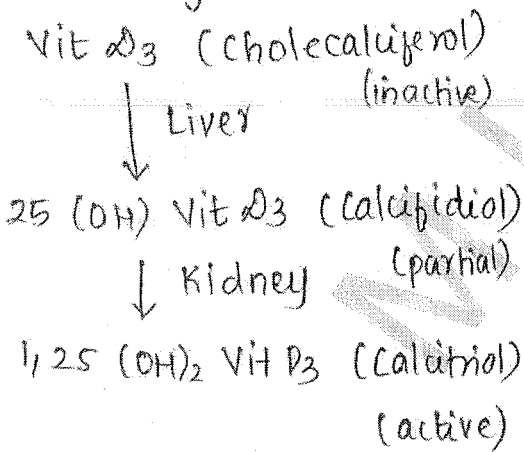 Vit D3 (Cholecalciferol)
(inactive)
↓ Liver
25 (OH) Vit D3 (Calcifidiol)
(partial)
↓ Kidney
1,25 (OH)₂ Vit D3 (Calcitriol)
(active)